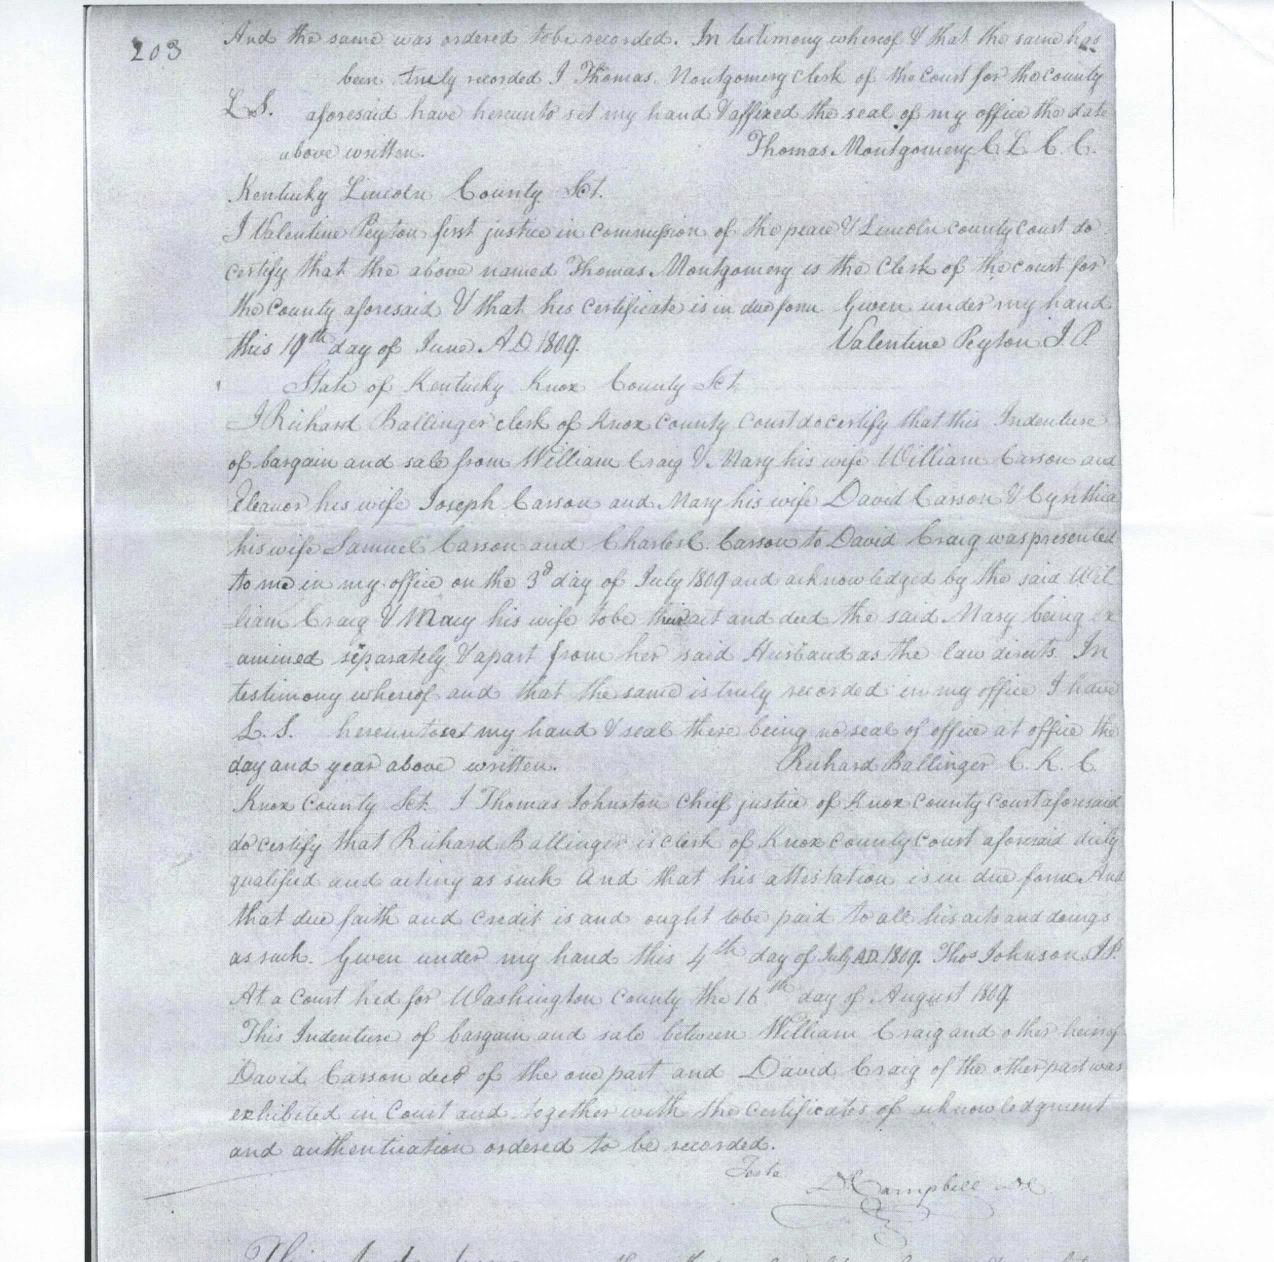 203
And the same was ordered to be recorded. In testimony whereof & that the same has
been truly recorded I Thomas Montgomery clerk of the court for the county
L. S. aforesaid have hereunto set my hand & affixed the seal of my office the date
above written. Thomas Montgomery C L C C.
Kentucky Lincoln County Sct.
I Valentine Peyton first justice in commission of the peace & Lincoln county court do
certify that the above named Thomas Montgomery is the Clerk of the court for
the county aforesaid & that his certificate is in due form Given under my hand
this 19th day of June A.D. 1809. Valentine Peyton J. P.
State of Kentucky Knox County Sct
I Richard Ballinger clerk of Knox county court do certify that this Indenture
of bargain and sale from William Craig & Mary his wife William Carson and
Eleanor his wife Joseph Carson and Mary his wife David Carson & Cynthia
his wife Samuel Carson and Charles C. Carson to David Craig was presented
to me in my office on the 3d day of July 1809 and acknowledged by the said Wil
liam Craig & Mary his wife to be their act and deed the said Mary being ex
amined separately & apart from her said Husband as the law directs. In
testimony whereof and that the same is truly recorded in my office I have
L. S. hereunto set my hand & seal there being no seal of office at office the
day and year above written. Richard Ballinger C. K. C.
Knox County Sct. I Thomas Johnston Chief justice of Knox County Court aforesaid
do certify that Richard Ballinger is clerk of Knox county court aforesaid duly
qualified and acting as such And that his attestation is in due form And
that due faith and credit is and ought to be paid to all his acts and doings
as such. Given under my hand this 4th day of July AD. 1809. Thos Johnson J.P.
At a Court hed for Washington County the 16th day of August 1809
This Indenture of bargain and sale between William Craig and other heirs of
David Carson decd of the one part and David Craig of the other part was
exhibited in Court and together with the certificates of acknowledgment
and authentication ordered to be recorded.
Teste
D Campbell DC